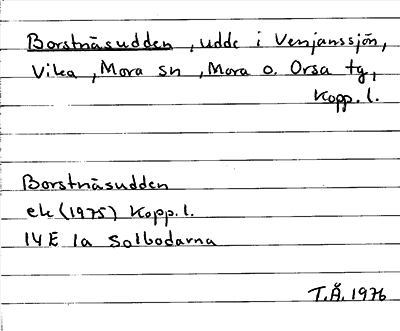 Borstnäsudden, udde i Venjanssjön,
Vika, Mora sn, Mora o. Orsa tg,
Kopp. l.
Borstnäsudden
ek (1975) Kopp. l.
14E 1a Solbodarna
T.Ä. 1976